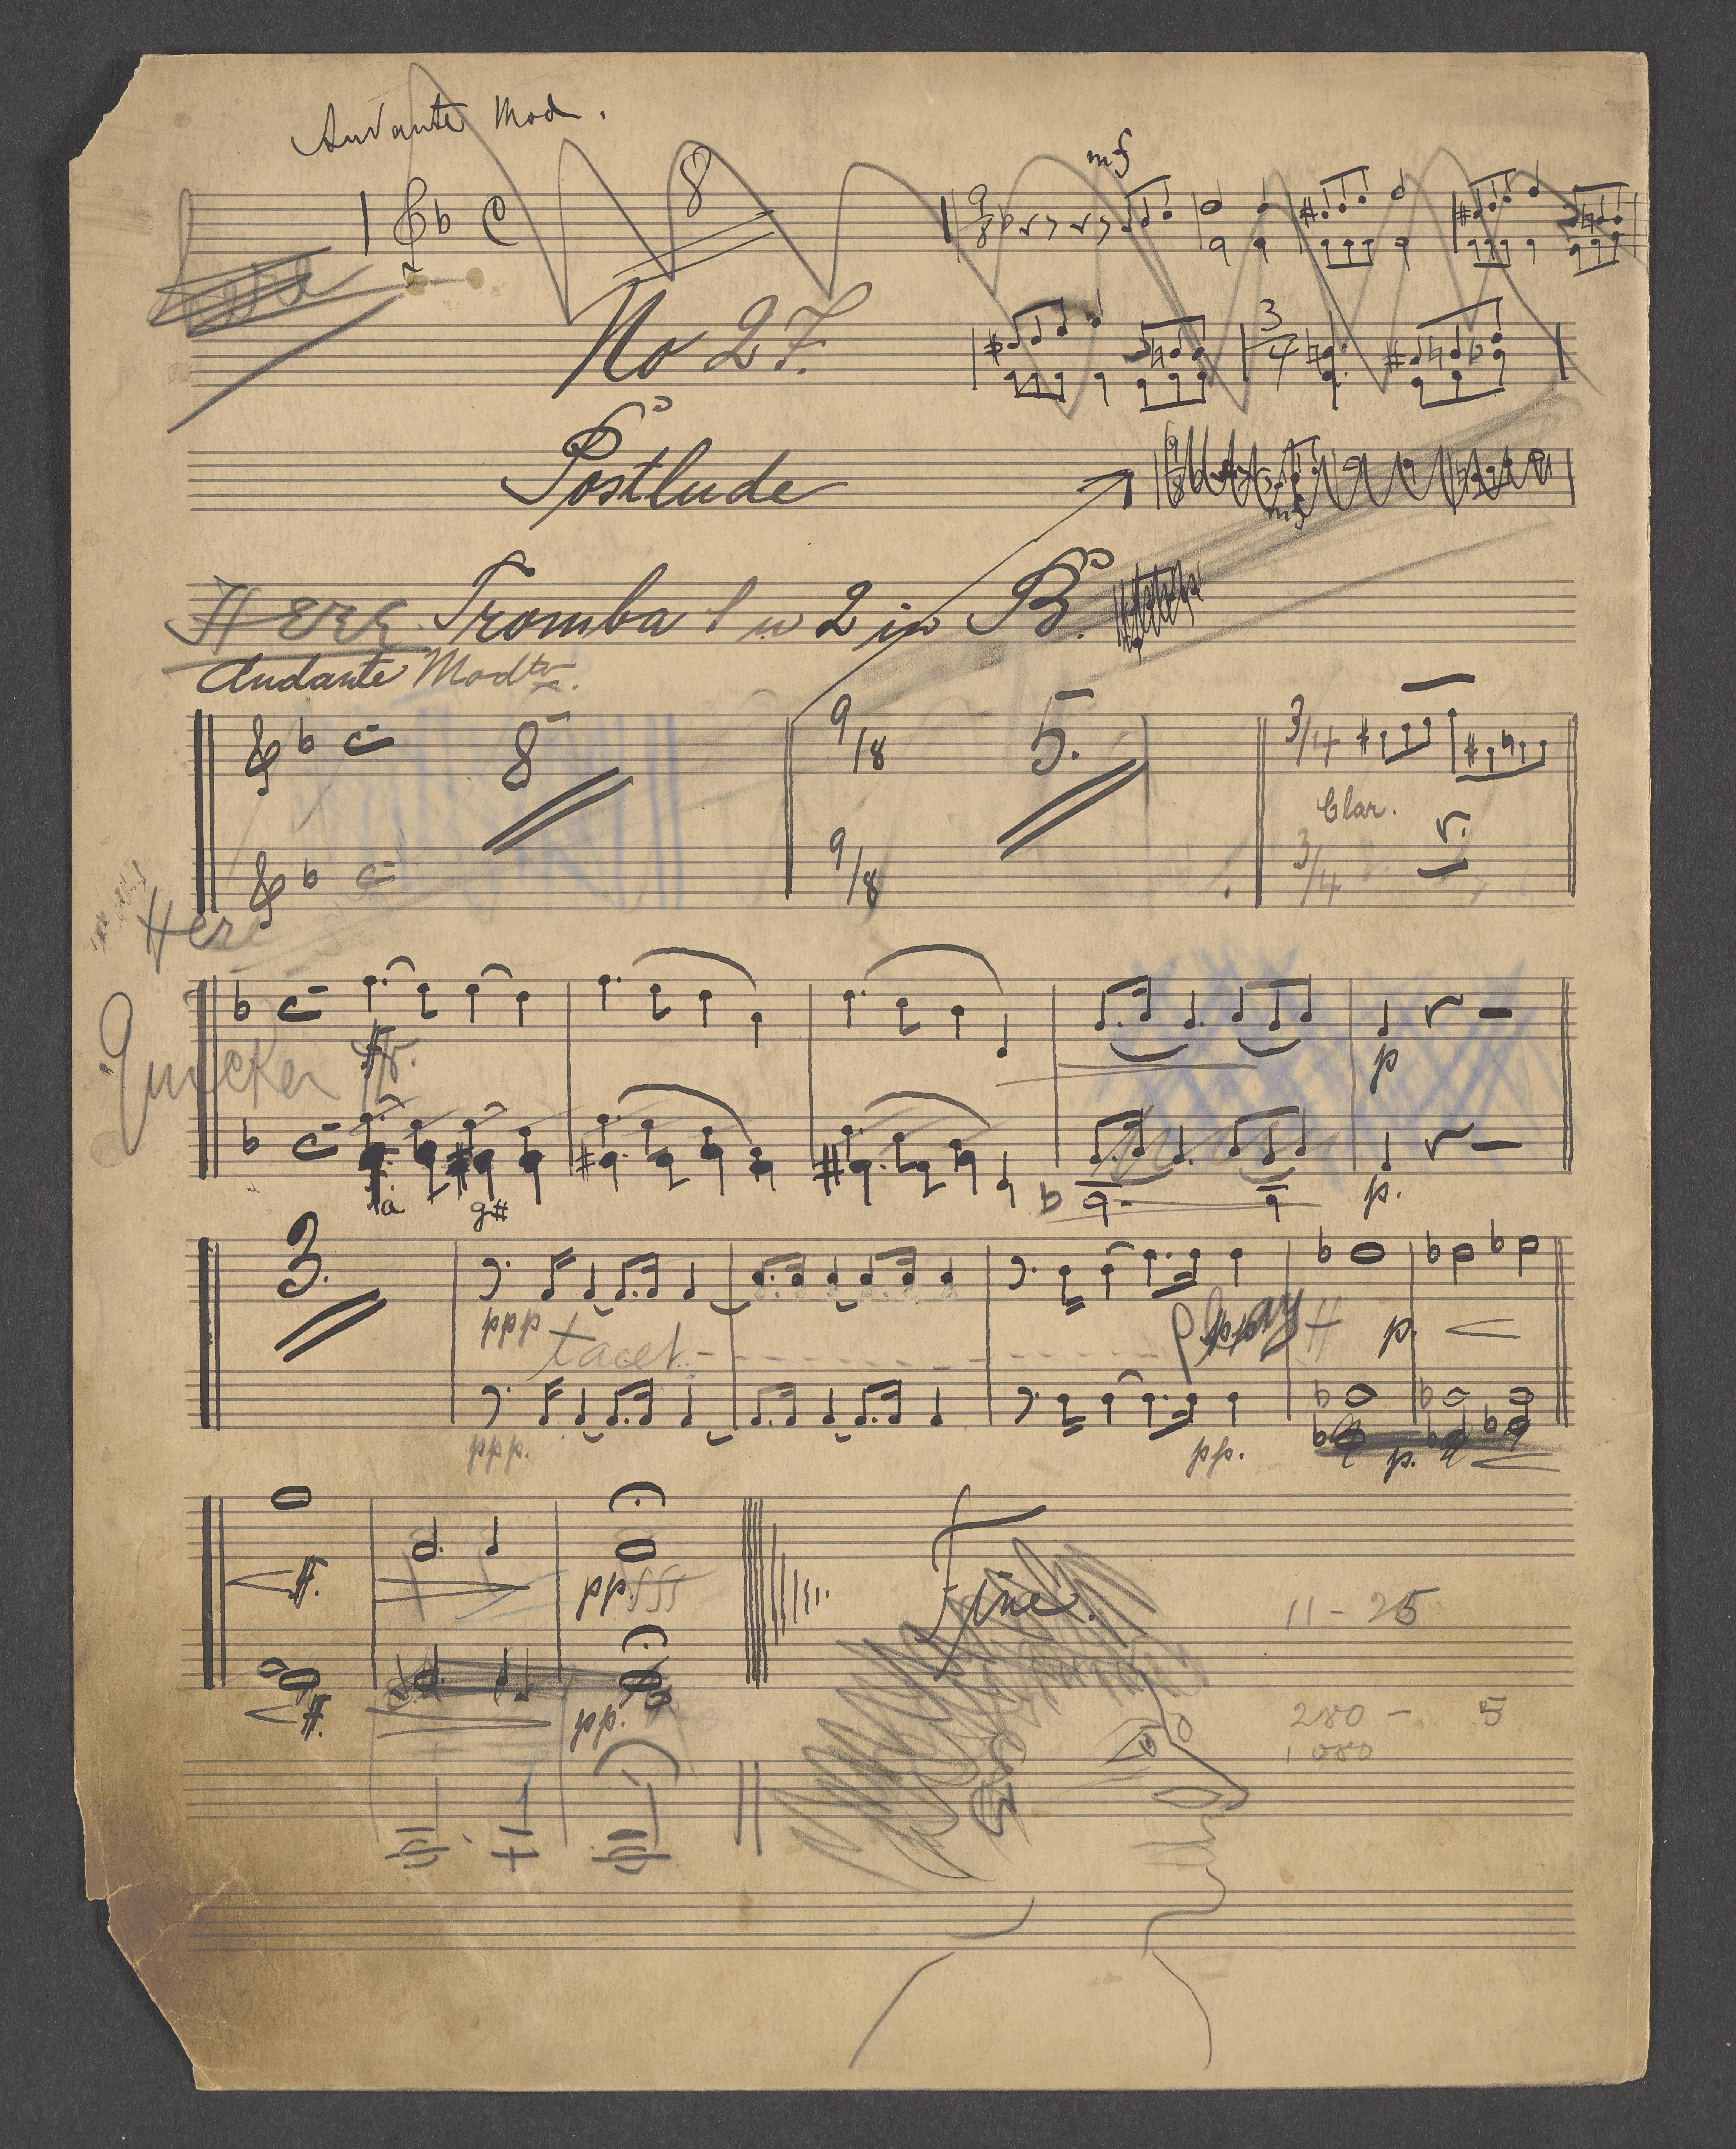 Andante Mod.
8
mf
9/8
No 27.
3/4
Postlude
mf
Here Tromba 1 u 2 in B.
Andante Modto.
8
9/8
5.
3/4
Clar.
9/8
3/4
Here
Quicker
ff
p
a
g#
p.
3.
ppp
tacet
pp
play
p.
ppp.
pp.
p.
ff.
pp.
Fine.
11 - 25
ff.
pp.
280 - 5
1080